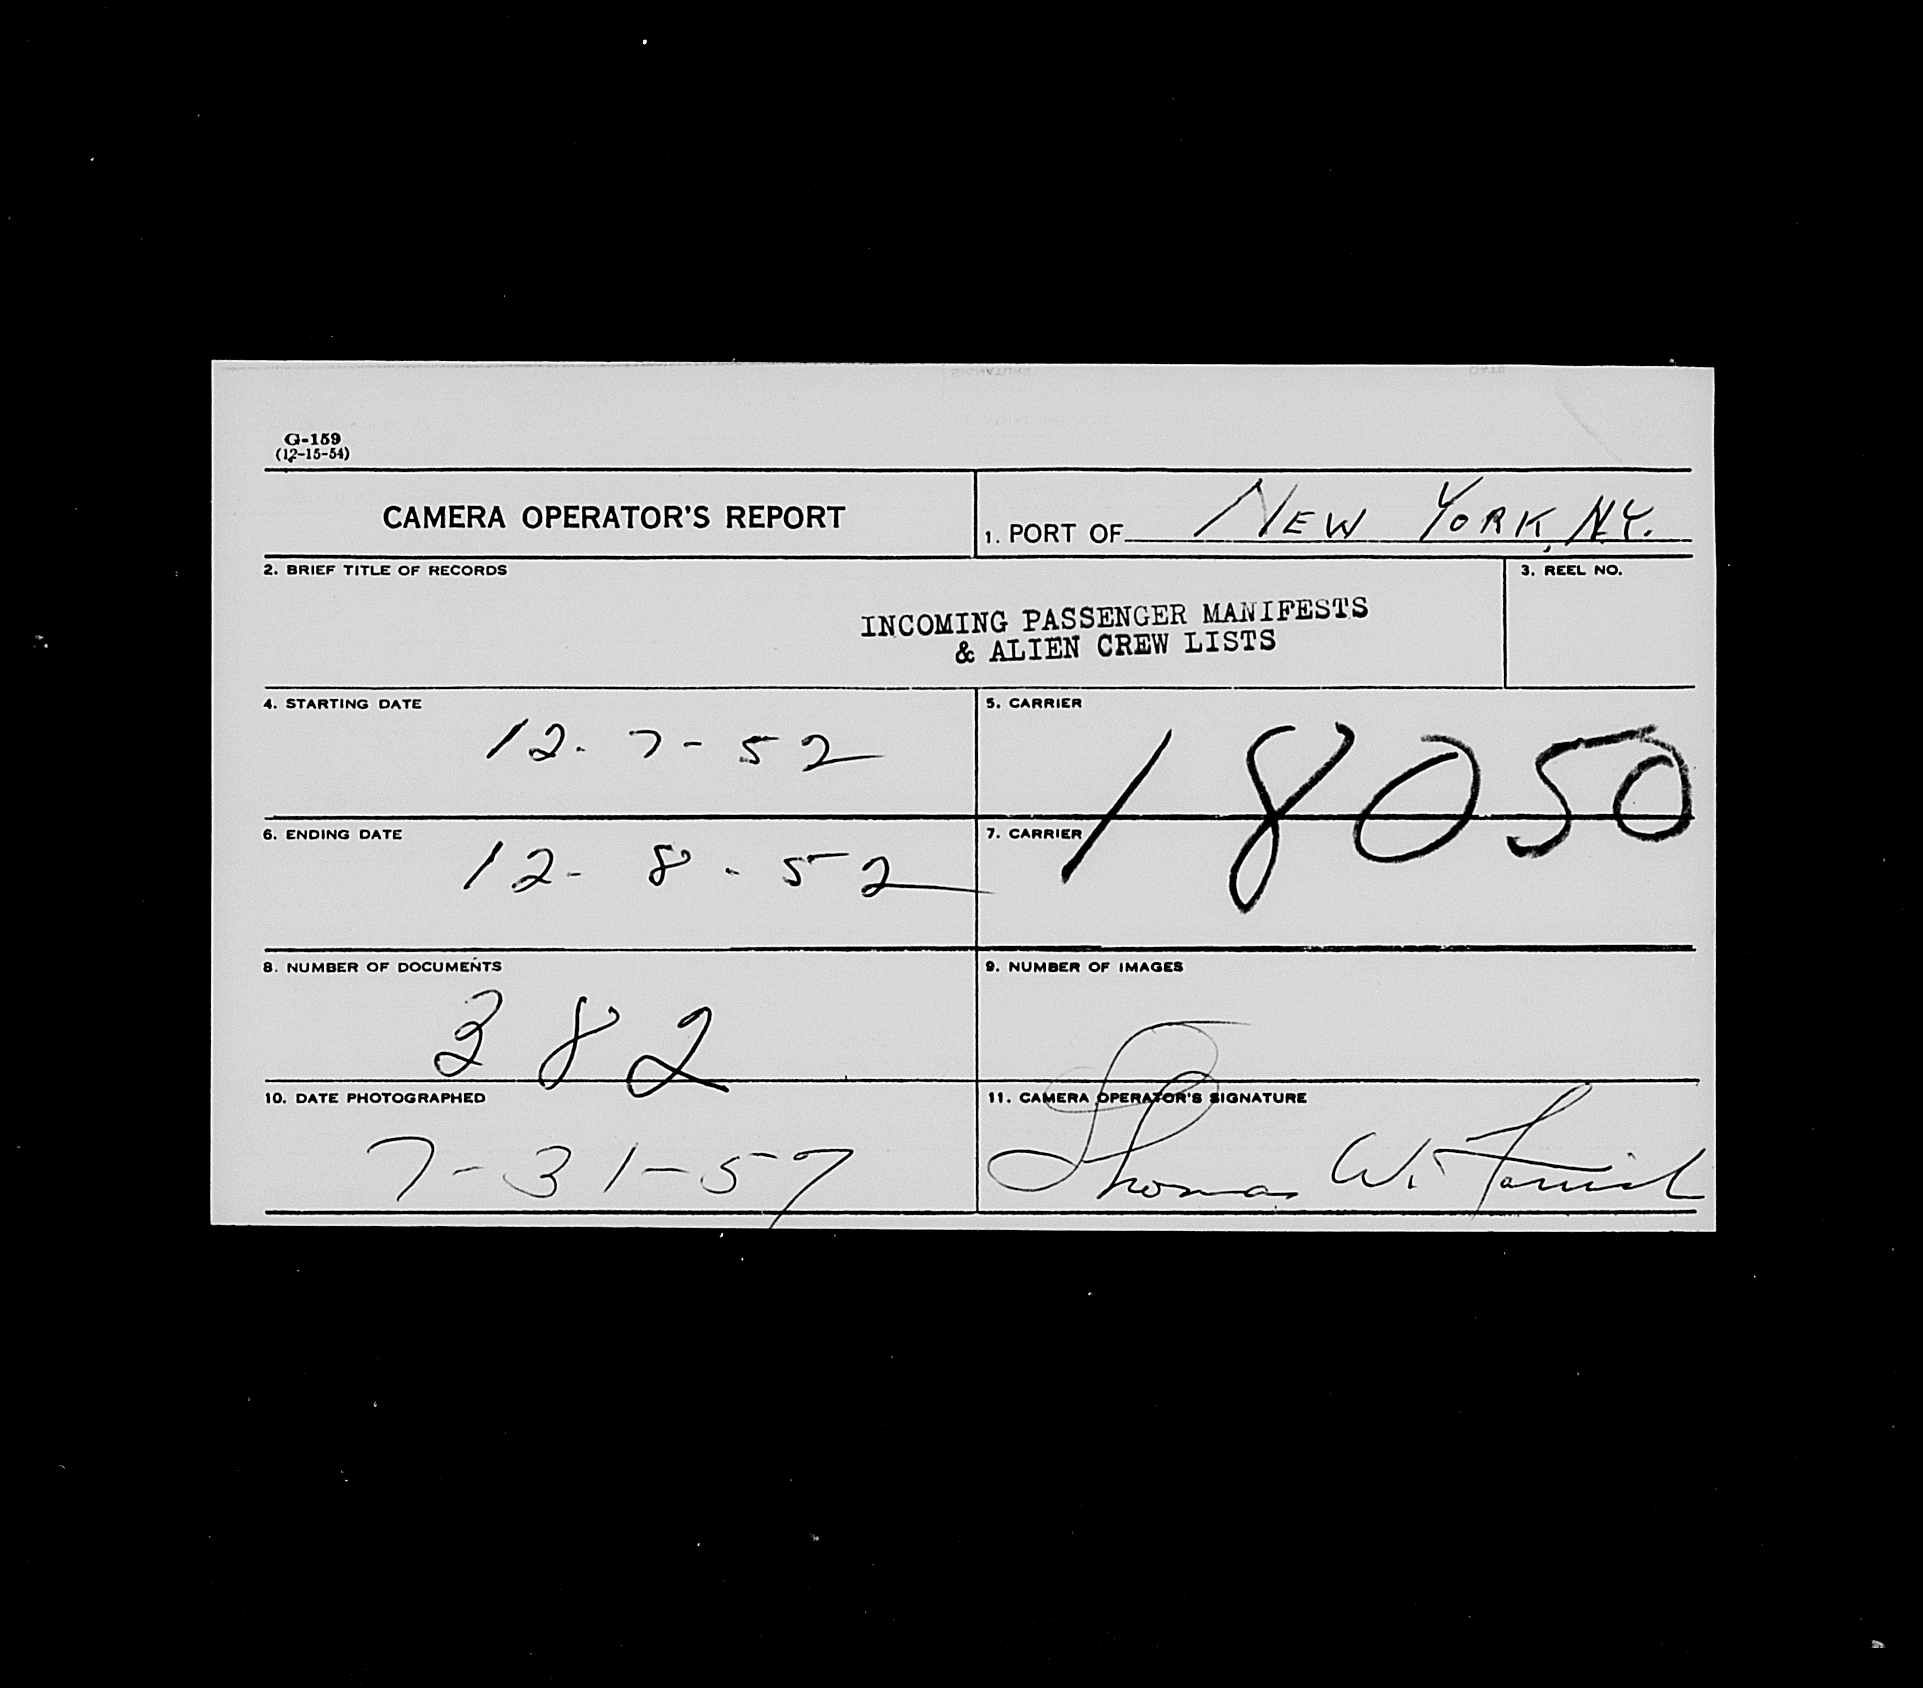 G-159
(12-15-54)
CAMERA OPERATOR'S REPORT
1. PORT OF NEW YORK, N.Y.
2. BRIEF TITLE OF RECORDS
INCOMING PASSENGER MANIFESTS
& ALIEN CREW LISTS
3. REEL NO.
4. STARTING DATE
12-7-52
5. CARRIER
18050
6. ENDING DATE
12-8-52
7. CARRIER
8. NUMBER OF DOCUMENTS
382
9. NUMBER OF IMAGES
10. DATE PHOTOGRAPHED
7-31-57
11. CAMERA OPERATOR'S SIGNATURE
Thomas W.